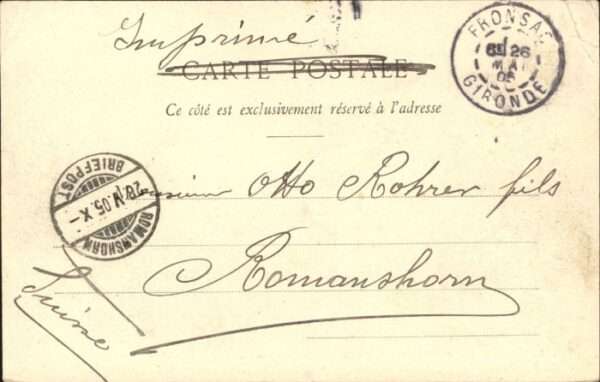 Imprimé
CARTE POSTALE
Ce côté est exclusivement réservé à l'adresse
FRONSAC
26
MAI
05
GIRONDE
Monsieur Otto Rohrer fils
Romanshorn
Suisse
ROMANSHORN
28.V.05.X-
BRIEFPOST